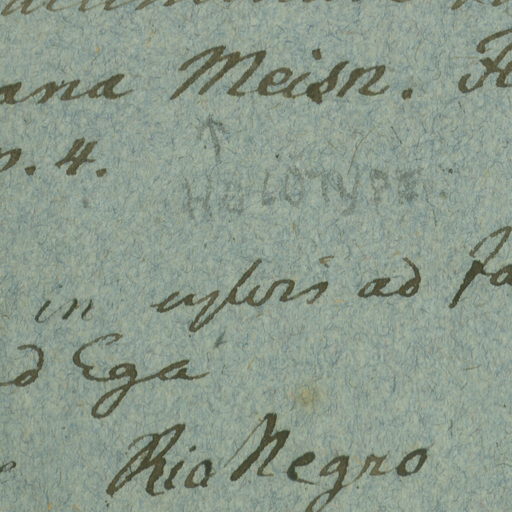 ana Meisn. Fl
p. 4.
↑
HOLOTYPE.
in sylvis ad Fa
d Ega
Rio Negro